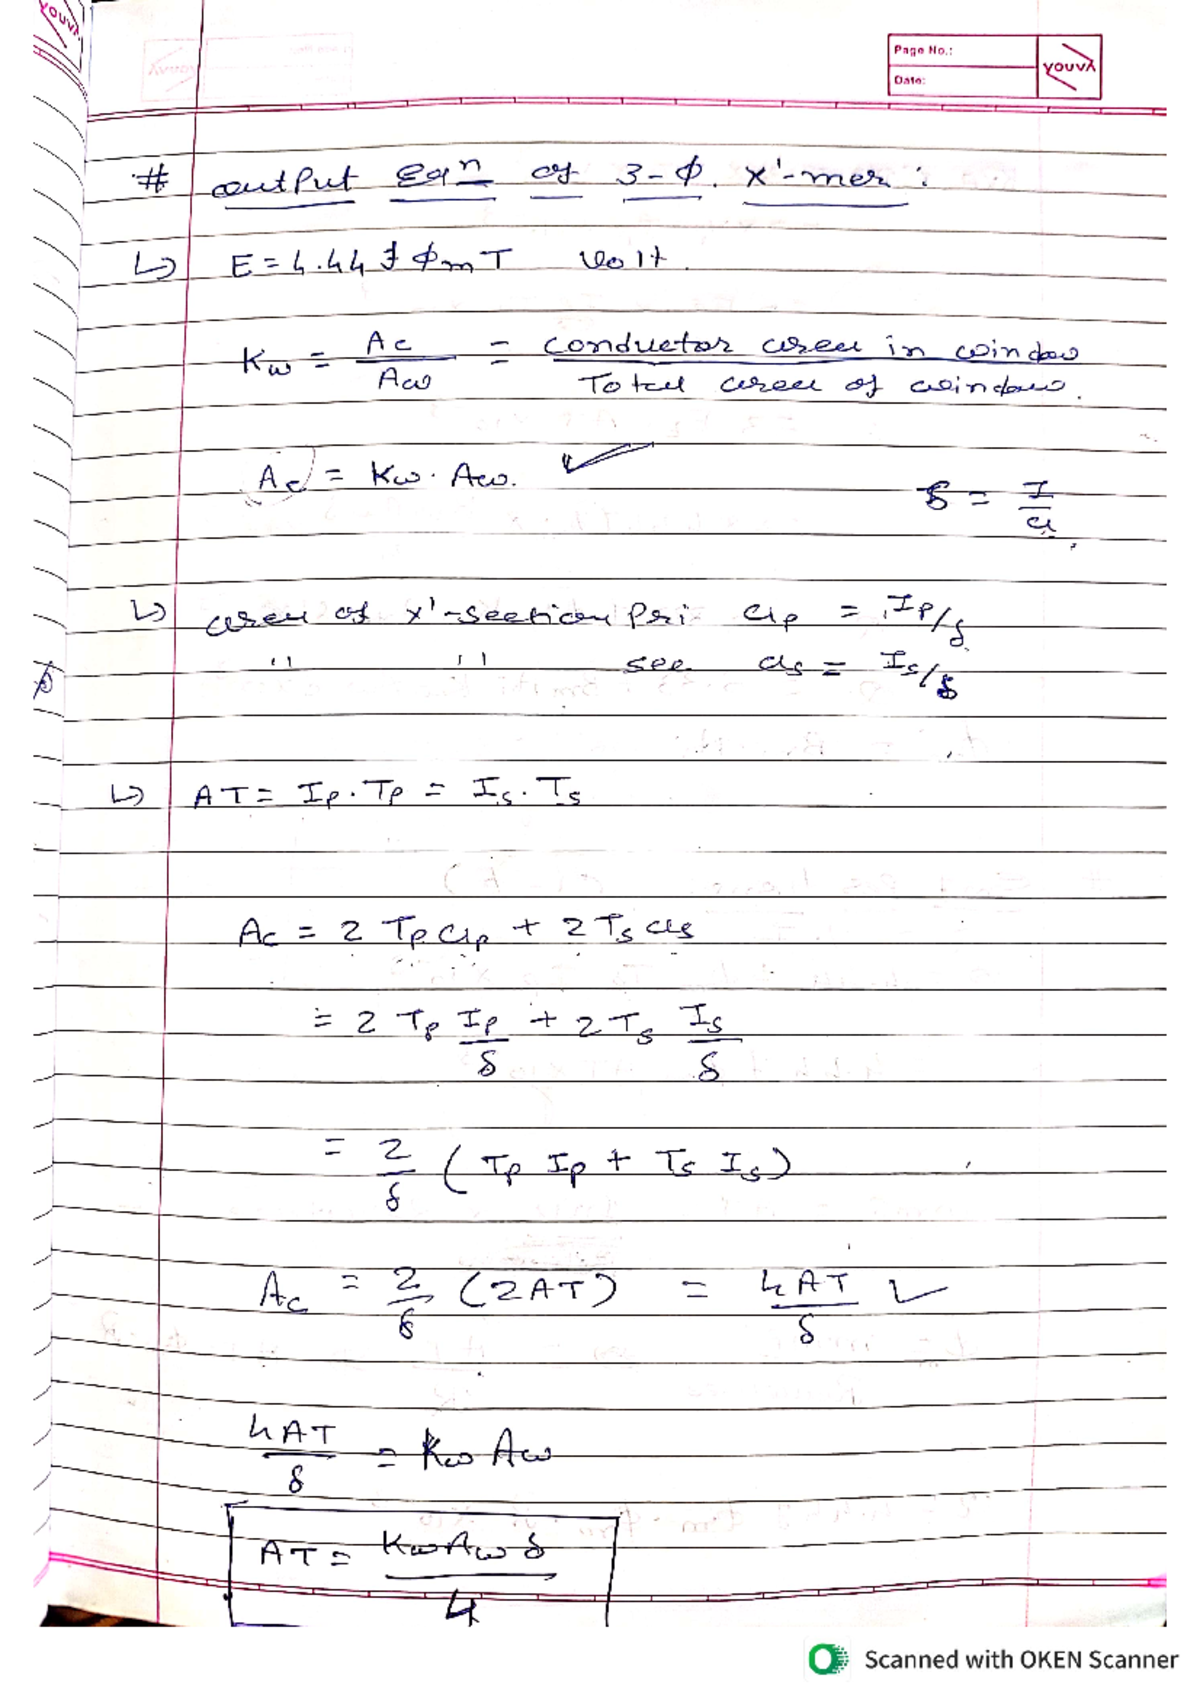 YOUVA
Page No.:
Date:
YOUVA
# output Eqn of 3-ϕ. x'-mer :
↳ E = 4.44 f ϕm T volt.
Kw = Ac/Aw = conductor area in window / Total area of window.
Ac = Kw · Aw. ✓
δ = I/a
↳ area of x'-section Pri ap = Ip/δ
" " sec as = Is/δ
↳ AT = Ip · Tp = Is · Ts
Ac = 2 Tp ap + 2 Ts as
= 2 Tp Ip/δ + 2 Ts Is/δ
= 2/δ ( Tp Ip + Ts Is )
Ac = 2/δ (2AT) = 4AT/δ ✓
4AT/δ = Kw Aw
AT = Kw Aw δ / 4
Scanned with OKEN Scanner